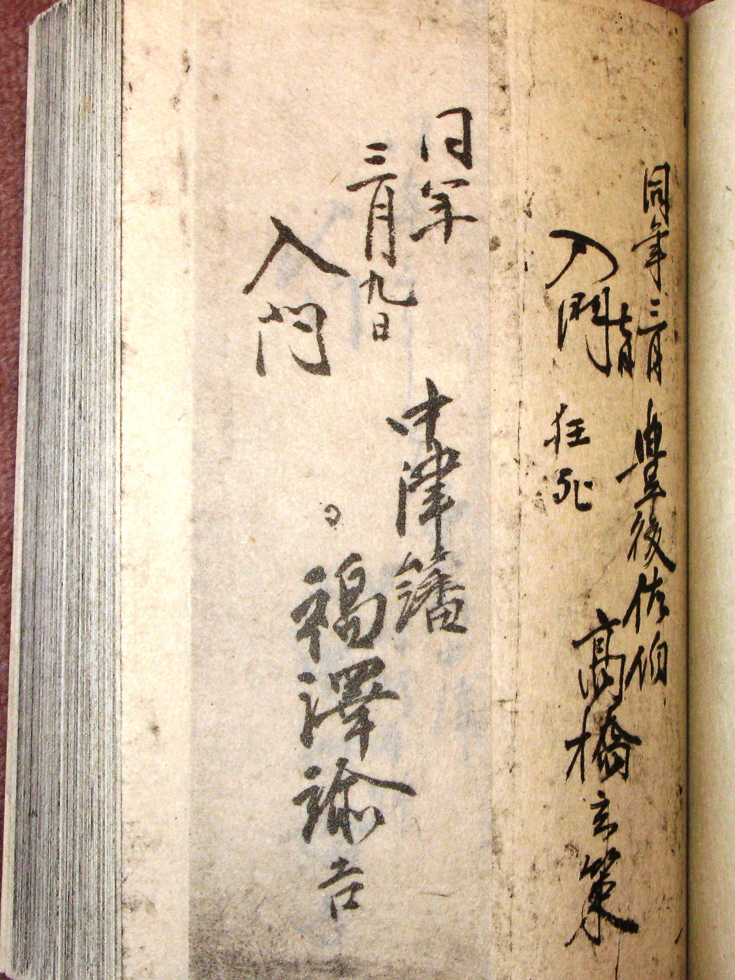 同年三月
七日
入門
豊後佐伯
高橋玄策
狂死
同年
三月九日
入門
中津藩
福澤諭吉